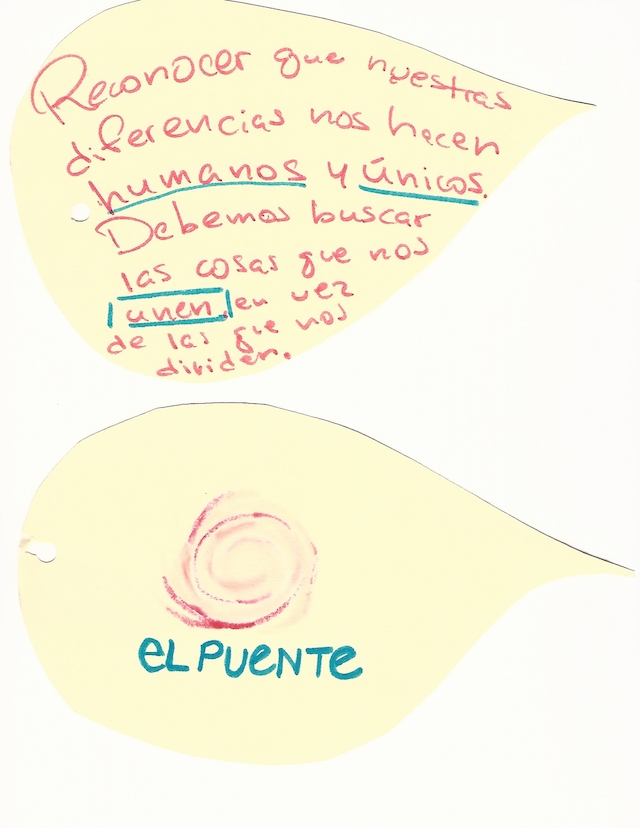 Reconocer que nuestras
diferencias nos hacen
humanos y únicos.
Debemos buscar
las cosas que nos
unen, en vez
de las que nos
dividen.
eL PUeNTe